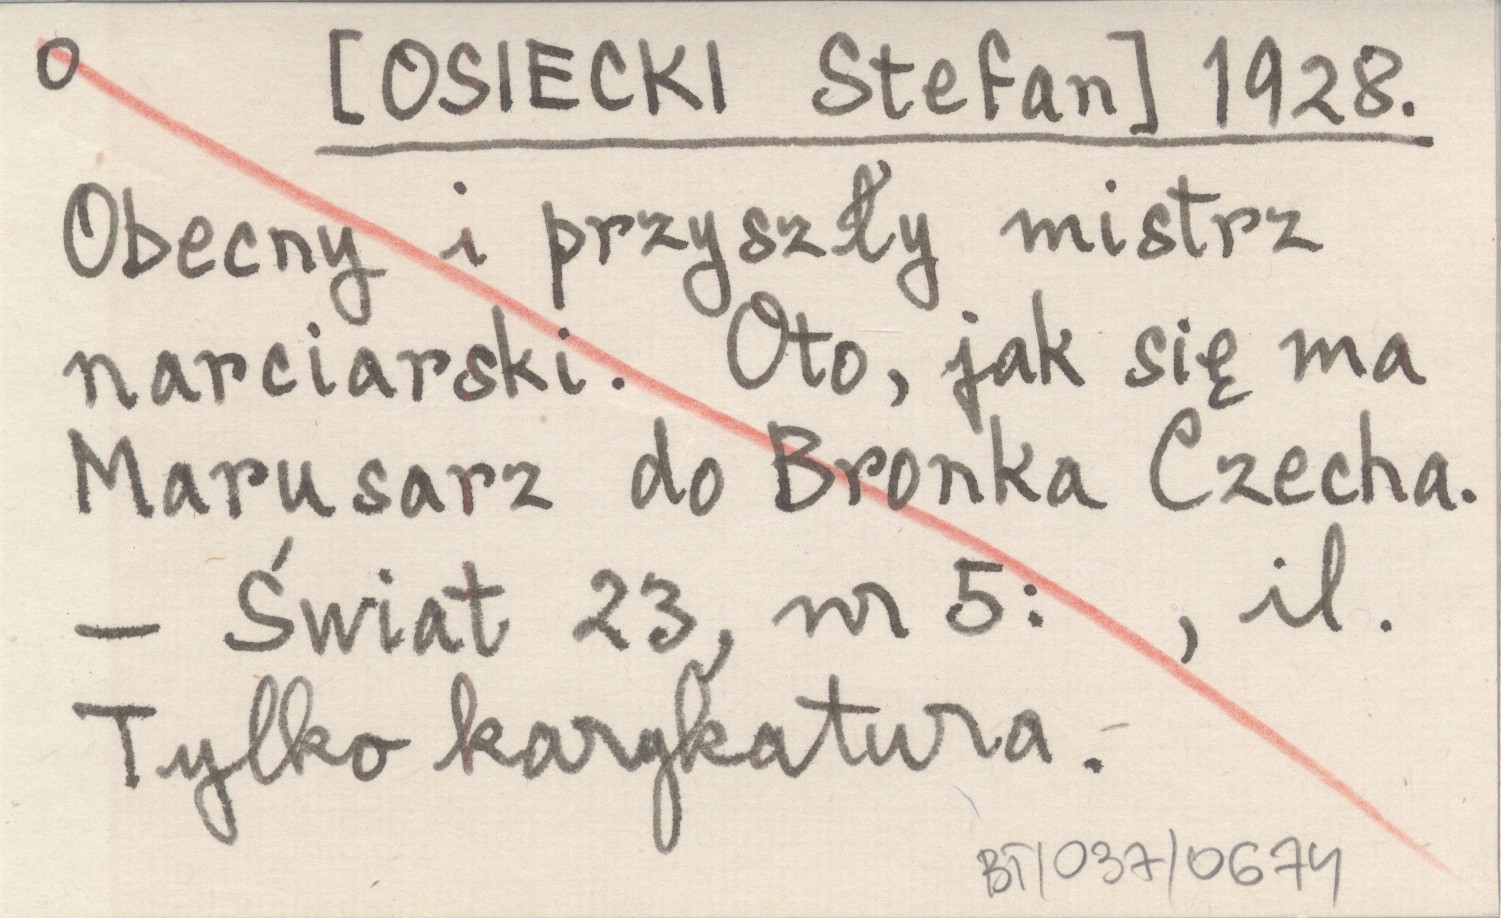 O [OSIECKI Stefan] 1928.
Obecny i przyszły mistrz
narciarski. Oto, jak się ma
Marusarz do Bronka Czecha.
— Świat 23, nr 5: , il.
Tylko karykatura.
BT/037/0674